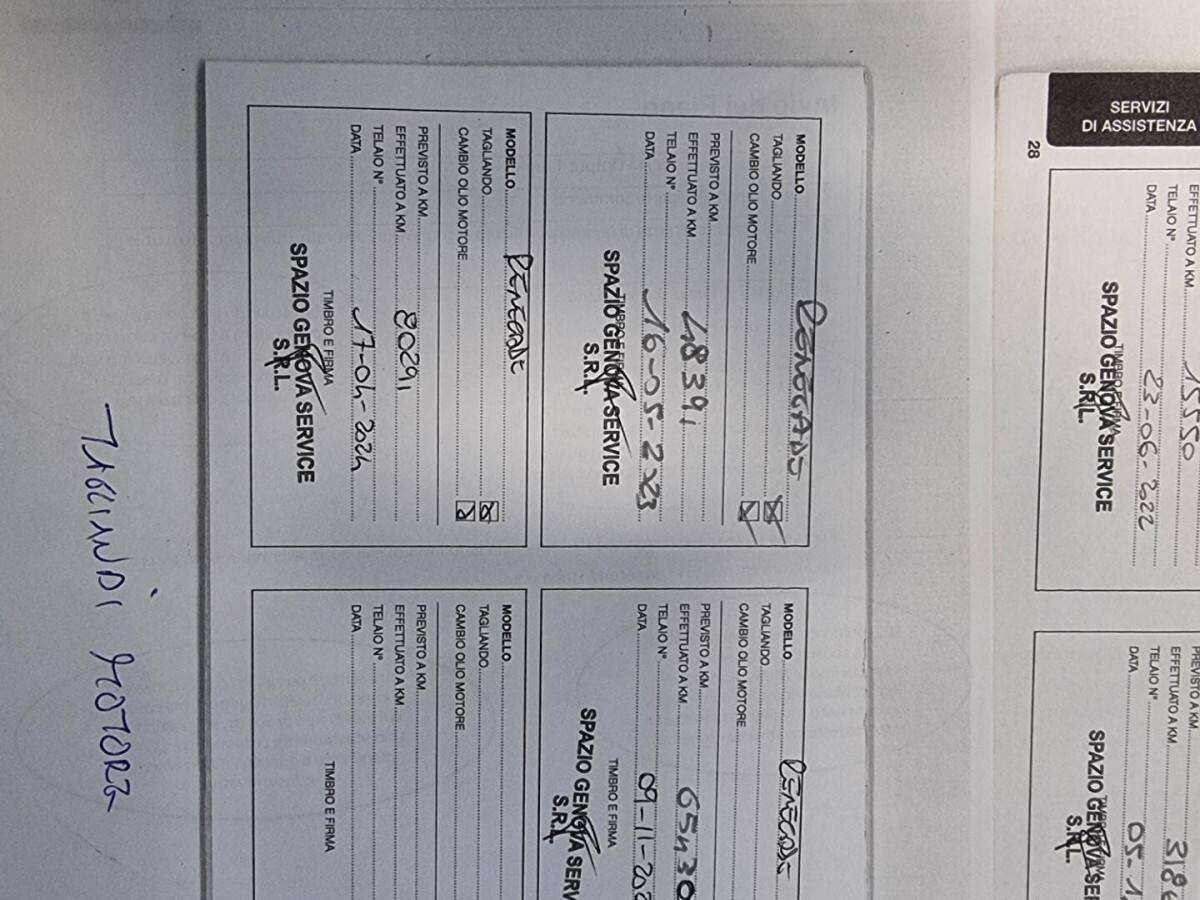 SERVIZI
DI ASSISTENZA
28
EFFETTUATO A KM 15550
TELAIO N°
DATA 23-06-2022
TIMBRO E FIRMA
SPAZIO GENOVA SERVICE
S.R.L.
PREVISTO A KM
EFFETTUATO A KM
TELAIO N°
DATA
SPAZIO GENOVA SER
S.R.L.
MODELLO RENEGADE
TAGLIANDO
CAMBIO OLIO MOTORE
PREVISTO A KM
EFFETTUATO A KM 48391
TELAIO N°
DATA 16-05-2023
TIMBRO E FIRMA
SPAZIO GENOVA SERVICE
S.R.L.
MODELLO RENEGADE
TAGLIANDO
CAMBIO OLIO MOTORE
PREVISTO A KM
EFFETTUATO A KM 65430
TELAIO N°
DATA 09-11-202
TIMBRO E FIRMA
SPAZIO GENOVA SERV
S.R.L.
MODELLO RENEGADE
TAGLIANDO
CAMBIO OLIO MOTORE
PREVISTO A KM
EFFETTUATO A KM 80291
TELAIO N°
DATA 17-04-2024
TIMBRO E FIRMA
SPAZIO GENOVA SERVICE
S.R.L.
MODELLO
TAGLIANDO
CAMBIO OLIO MOTORE
PREVISTO A KM
EFFETTUATO A KM
TELAIO N°
DATA
TIMBRO E FIRMA
TAGLIANDI MOTORE